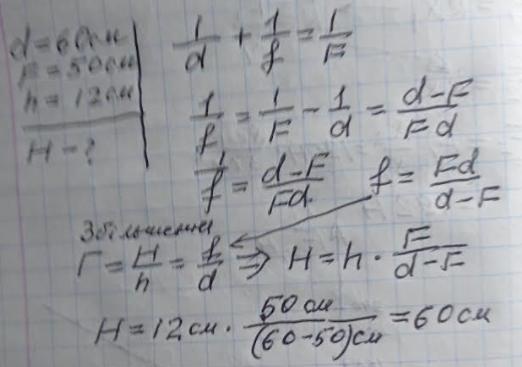 d = 60см
F = 50см
h = 12см
H - ?
1/d + 1/f = 1/F
1/f = 1/F - 1/d = (d-F)/(Fd)
1/f = (d-F)/(Fd) f = Fd/(d-F)
Збільшення
Г = H/h = f/d ⇒ H = h · F/(d-F)
H = 12см · 50см/((60-50)см) = 60см